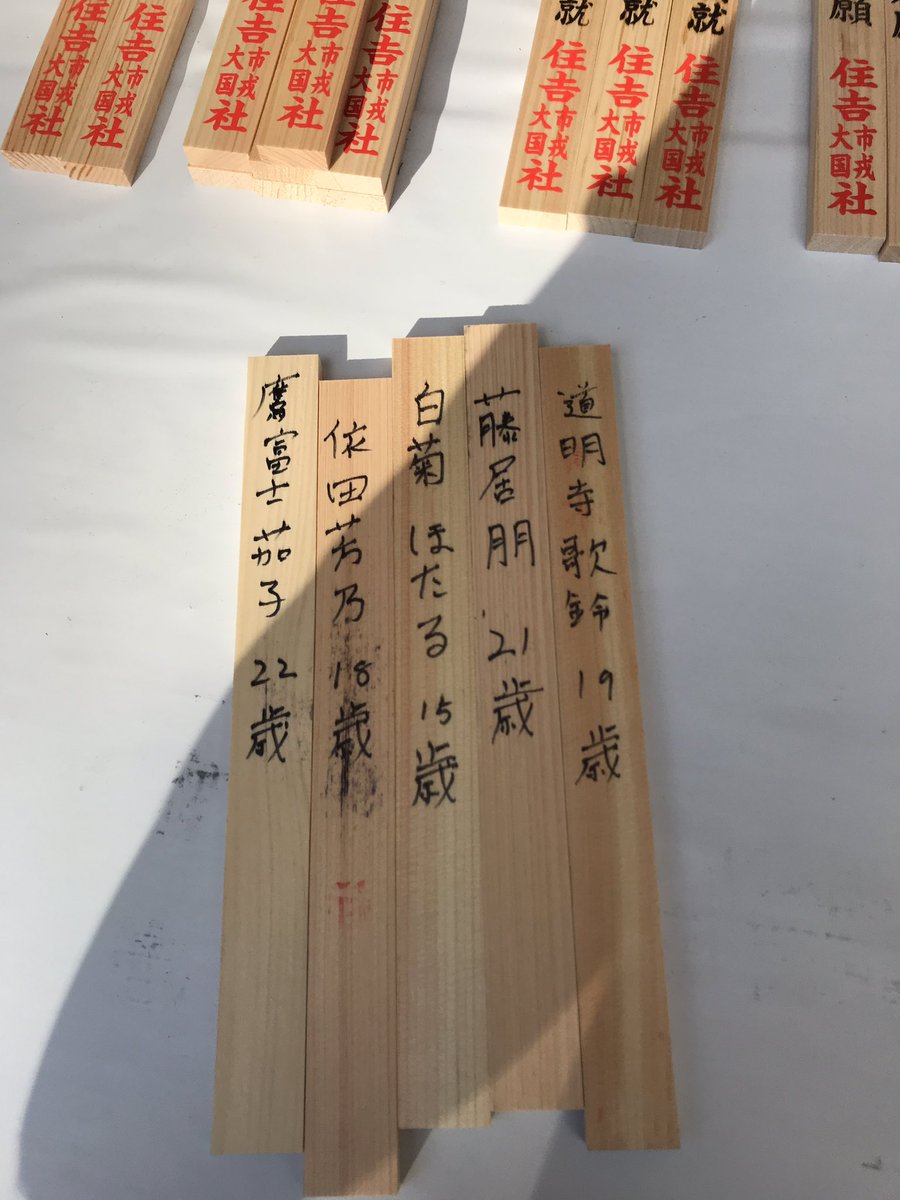 願住吉市戎大国社
就住吉市戎大国社
就住吉市戎大国社
就住吉市戎大国社
住吉市戎大国社
住吉市戎大国社
住吉市戎大国社
住吉市戎大国社
住吉市戎大国社
道明寺歌鈴 19歳
藤居朋 21歳
白菊ほたる 15歳
依田芳乃 18歳
鷹富士茄子 22歳